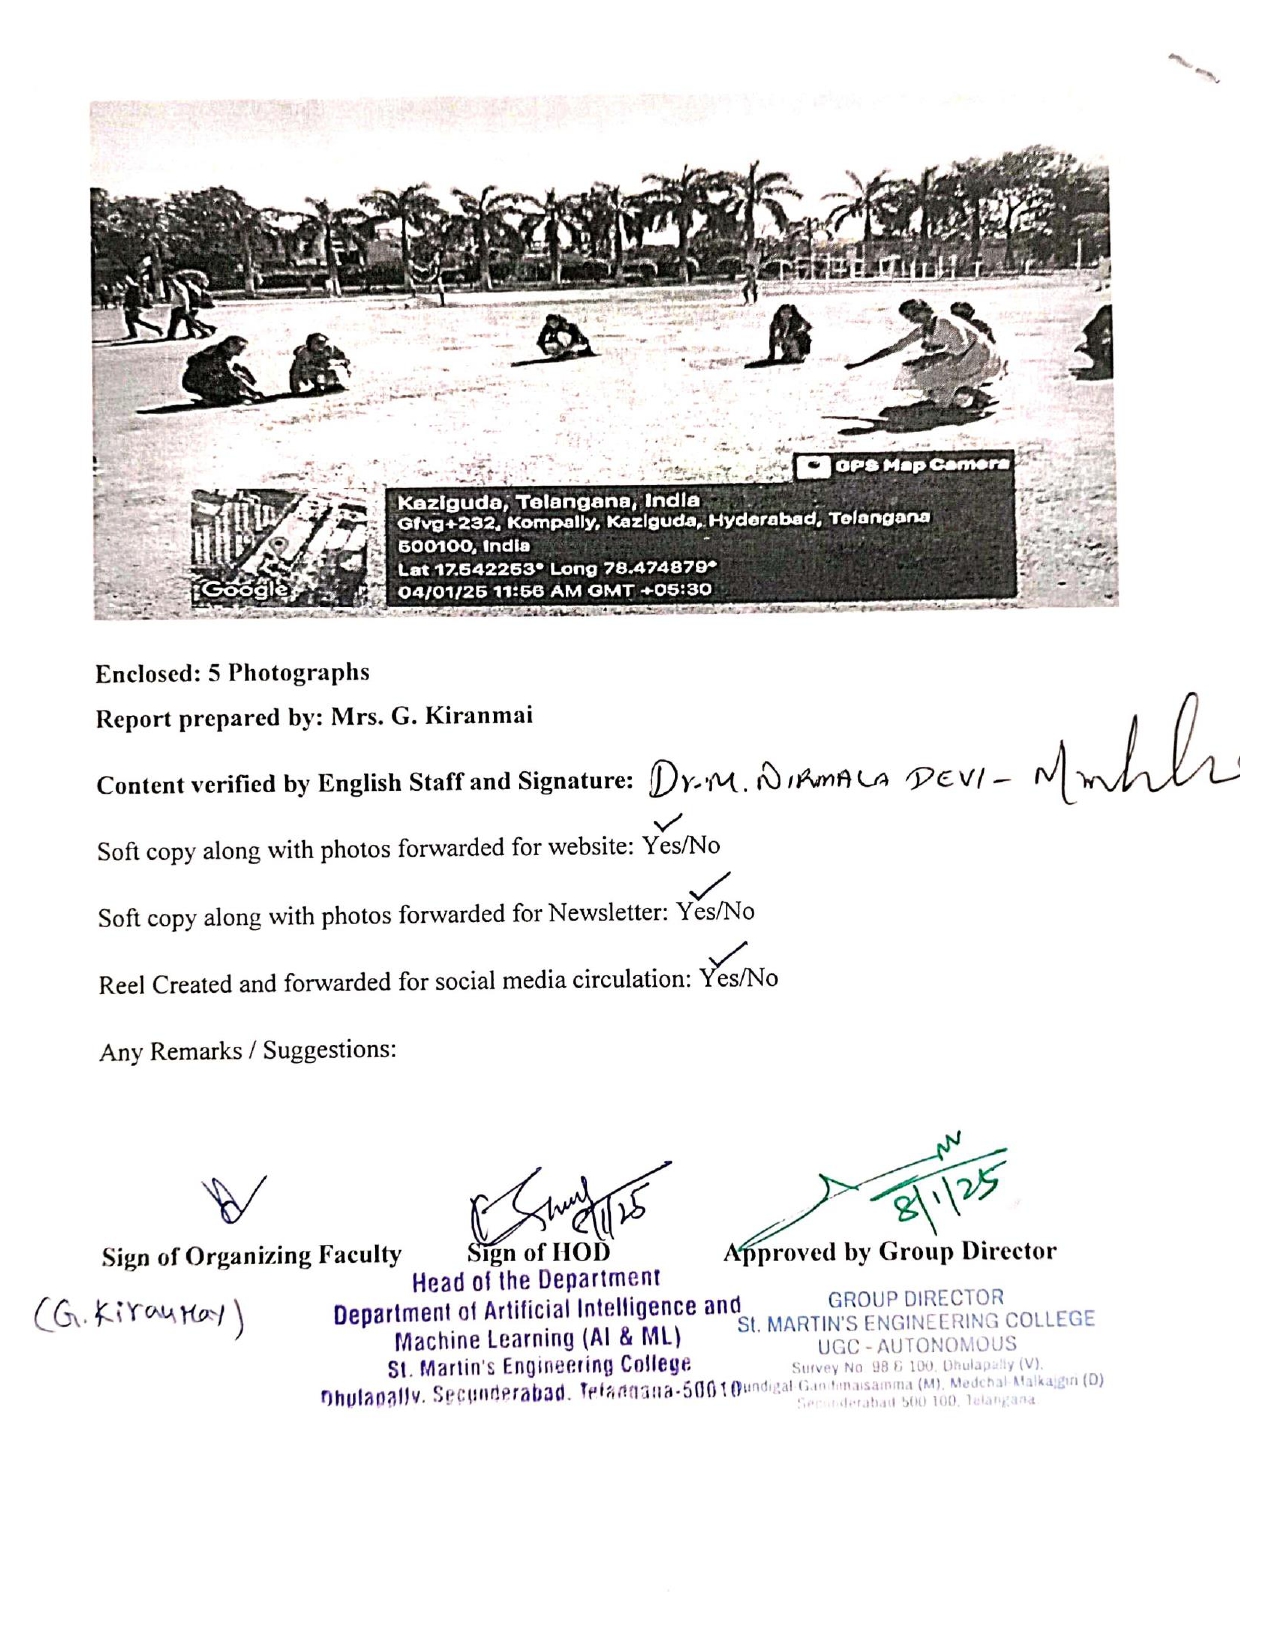 GPS Map Camera
Kaziguda, Telangana, India
Gfvg+232, Kompally, Kaziguda, Hyderabad, Telangana
500100, India
Lat 17.542253° Long 78.474879°
04/01/25 11:56 AM GMT +05:30
Google
Enclosed: 5 Photographs
Report prepared by: Mrs. G. Kiranmai
Content verified by English Staff and Signature: Dr. M. NIRMALA DEVI -
Soft copy along with photos forwarded for website: Yes/No
Soft copy along with photos forwarded for Newsletter: Yes/No
Reel Created and forwarded for social media circulation: Yes/No
Any Remarks / Suggestions:
8/1/25
8/1/25
Sign of Organizing Faculty
Sign of HOD
Approved by Group Director
(G. Kiranmai)
Head of the Department
Department of Artificial Intelligence and
Machine Learning (AI & ML)
St. Martin's Engineering College
Dhulapally, Secunderabad, Telangana-50010
GROUP DIRECTOR
St. MARTIN'S ENGINEERING COLLEGE
UGC - AUTONOMOUS
Survey No. 98 & 100, Dhulapally (V),
Gandimaisamma (M), Medchal-Malkajgiri (D)
Secunderabad 500 100, Telangana